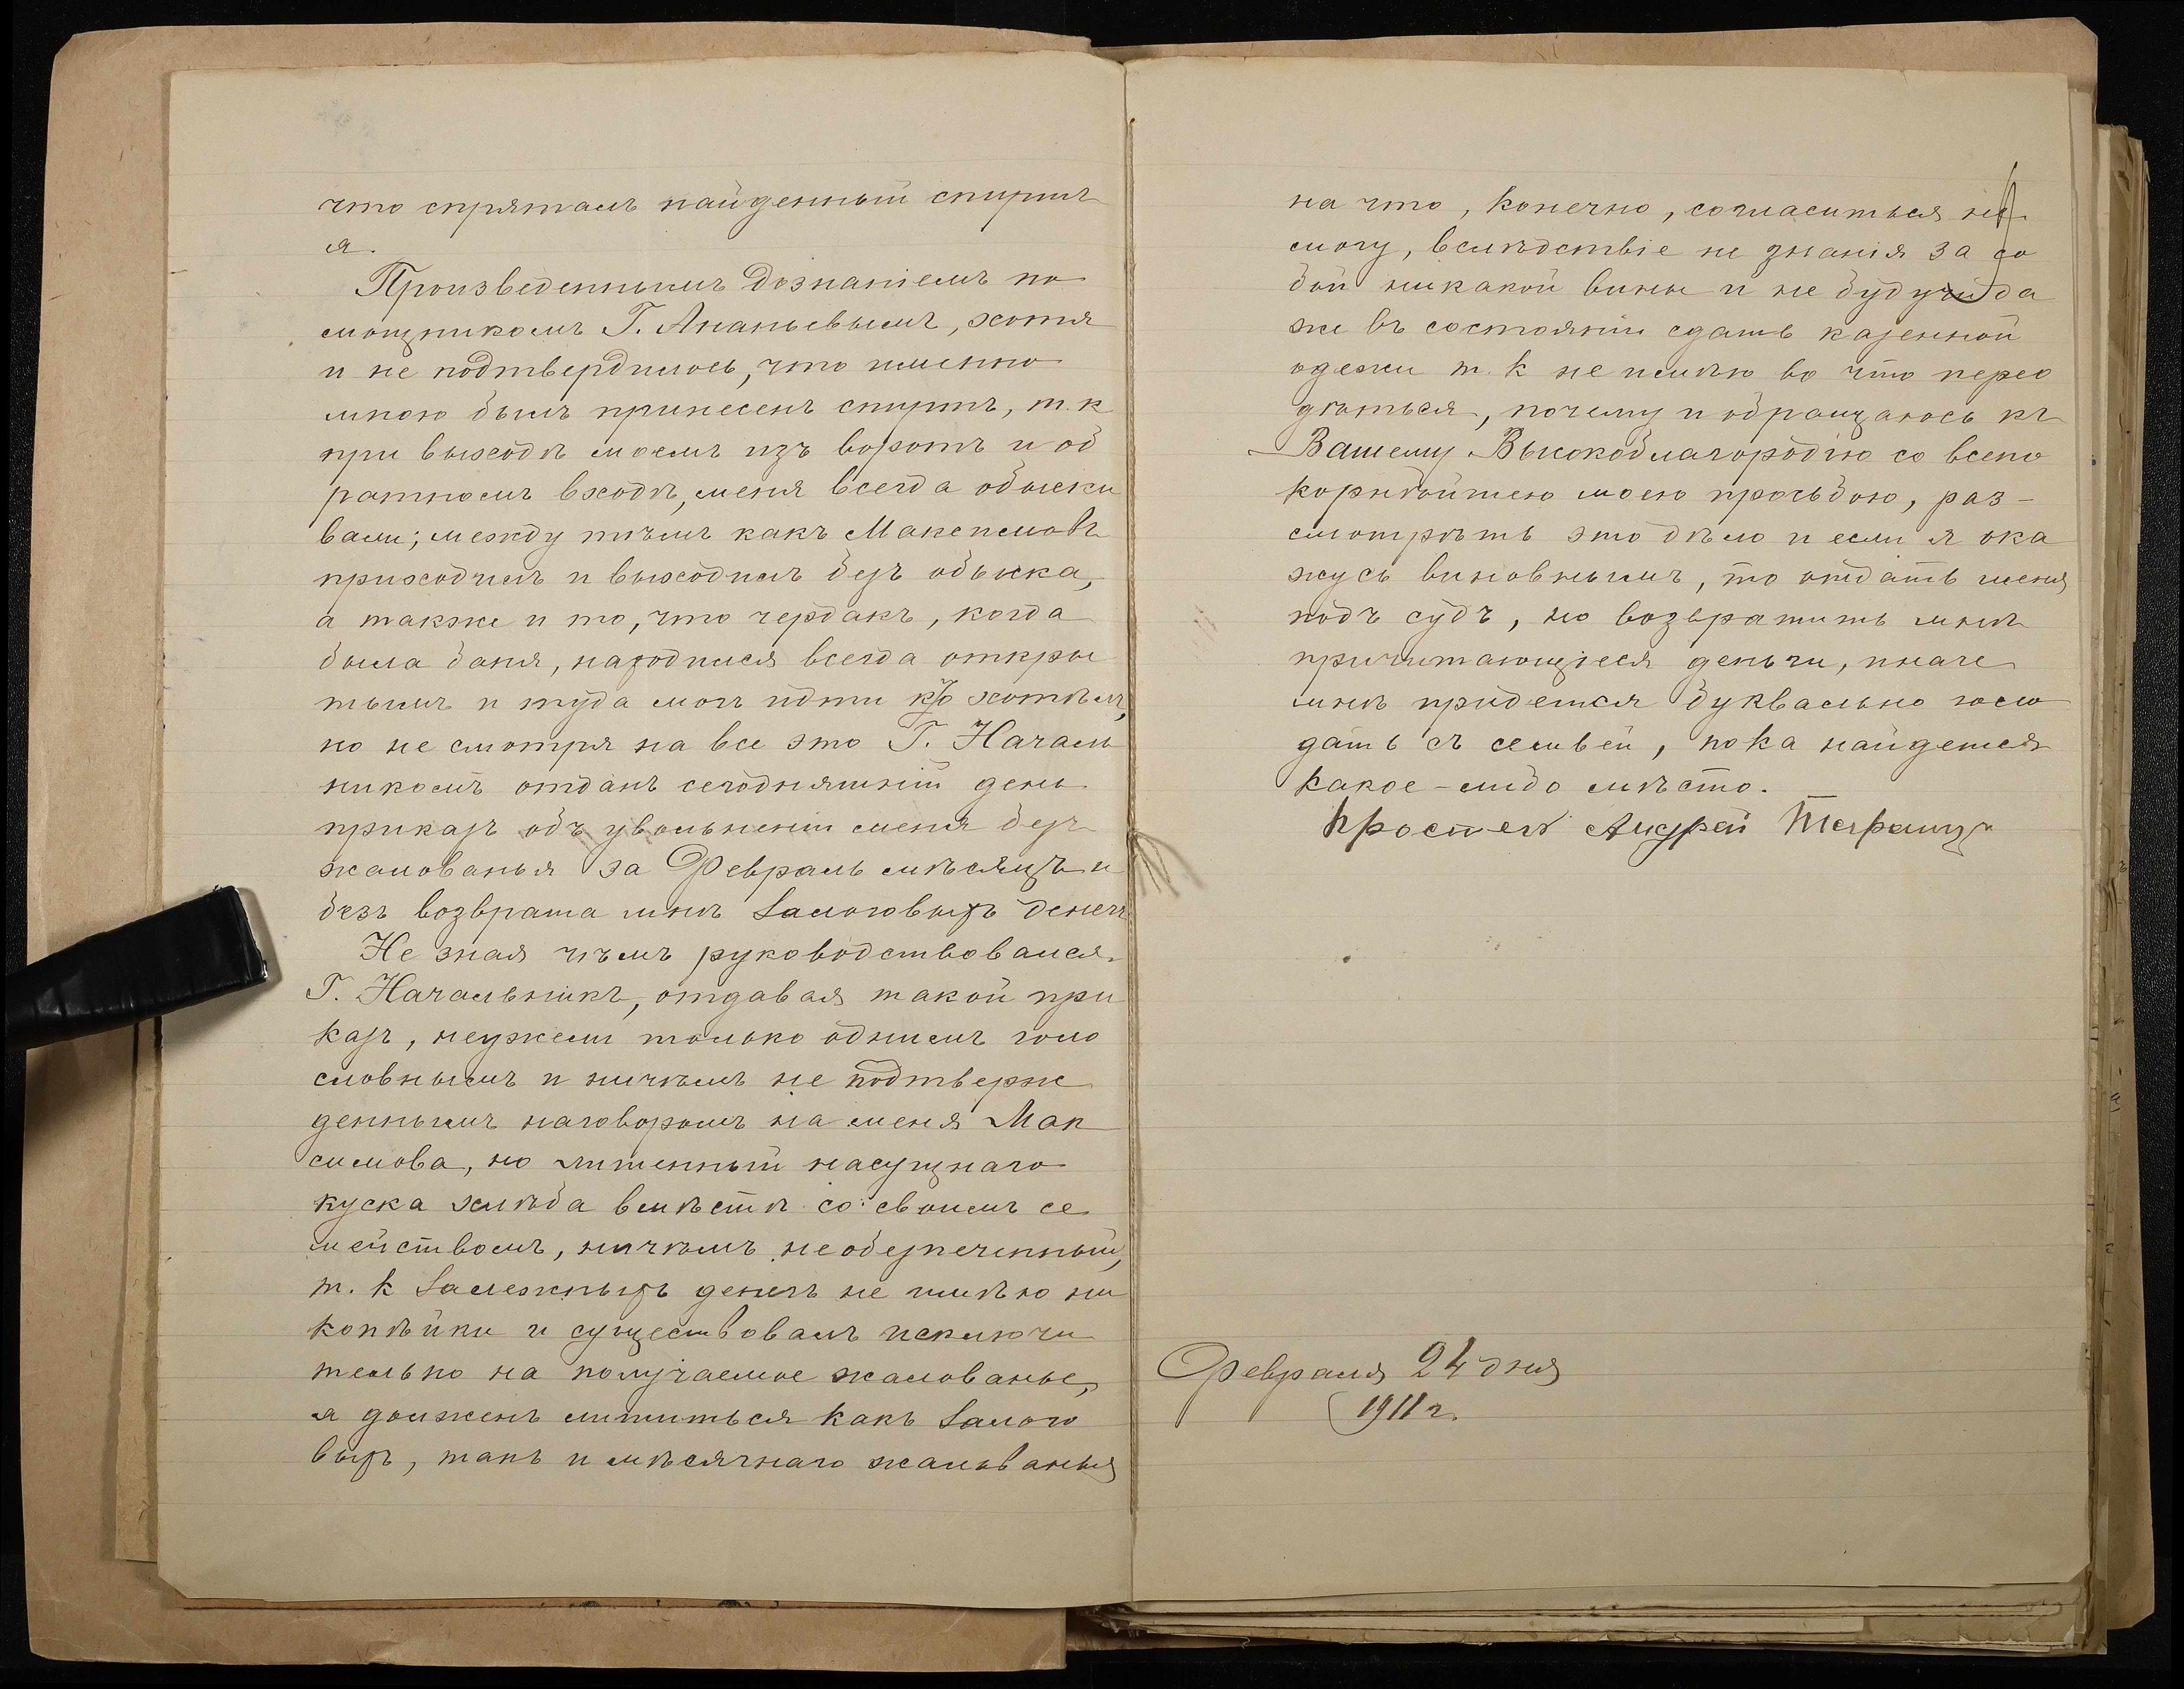 что спряталъ найденный спиртъ
я.
Произведеннымъ дознаніемъ по
мощникомъ Г. Ананьевымъ, хотя
и не подтвердилось, что именно
мною былъ принесенъ спиртъ, т. к
при выходѣ моемъ изъ воротъ и об
ратномъ входѣ, меня всегда обыски
вали; между тѣмъ какъ Максимовъ
приходилъ и выходилъ безъ обыска,
а также и то, что чердакъ, когда
была баня, находился всегда откры
тымъ и туда могъ идти кто хотѣлъ,
но не смотря на все это Г. Началь
никомъ отданъ сегодняшній день
приказъ объ увольненіи меня безъ
жалованья за Февраль мѣсяцъ и
безъ возврата мнѣ залоговыхъ денегъ
Не зная чѣмъ руководствовался
Г. Начальникъ, отдавая такой при
казъ, неужели только однимъ голо
словнымъ и ничѣмъ не подтверж
деннымъ наговоромъ на меня Мак
симова, но лишенный насущнаго
куска хлѣба вмѣстѣ со своимъ се
мействомъ, ничѣмъ не обезпеченный,
т. к залежныхъ денегъ не имѣю ни
копѣйки и существовалъ исключи
тельно на получаемое жалованье,
я долженъ лишиться какъ залого
выхъ, такъ и мѣсячнаго жалованья
на что, конечно, согласиться не
могу, вслѣдствіе не знанія за со
бой никакой вины и не будучи да
же въ состояніи сдать казенной
одежи т. к не имѣю во что перео
дѣться, почему и обращаюсь къ
Вашему Высокоблагородію со всепо
корнѣйшею моею просьбою, раз-
смотрѣть это дѣло и если я ока
жусь виновнымъ, то отдать меня
подъ судъ, но возвратить мнѣ
причитающіеся деньги, иначе
мнѣ придется буквально голо
дать съ семьей, пока найдется
какое-либо мѣсто.
Андрей
Февраля 24 дня
1911 г.